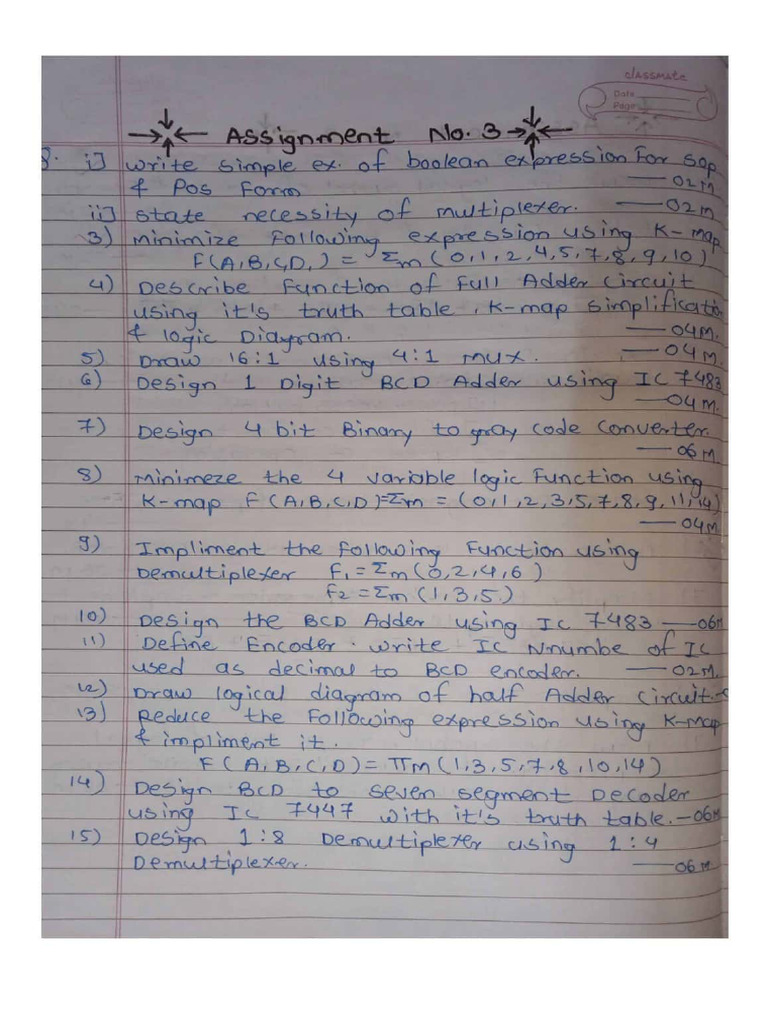 classmate
Date
Page
Assignment No. 3
8. i] write simple ex. of boolean expression For sop
& Pos Form —02M
ii] state necessity of multiplexer. —02M
3) minimize following expression using K-map
F(A,B,C,D,) = Σm (0,1,2,4,5,7,8,9,10)
4) Describe Function of Full Adder Circuit
using it's truth table, K-map simplificatio
& logic Diagram. —04M.
5) Draw 16:1 using 4:1 mux. —04M.
6) Design 1 Digit BCD Adder using IC 7483
—04M.
7) Design 4 bit Binary to gray code converter.
—06M
8) Minimeze the 4 variable logic Function using
K-map F(A,B,C,D)=Σm = (0,1,2,3,5,7,8,9,11,14)
—04M
9) Impliment the Following Function using
Demultiplexer F₁ = Σm(0,2,4,6)
F₂ = Σm (1,3,5.)
10) Design the BCD Adder using IC 7483 —06M
11) Define Encoder. write IC Nnumbe of IC
used as decimal to BCD encoder. —02M.
12) Draw logical diagram of half Adder circuit.
13) Reduce the Following expression using K-map
& impliment it.
F(A,B,C,D) = πM(1,3,5,7,8,10,14)
14) Design BCD to seven segment Decoder
using IC 7447 with it's truth table. —06M
15) Design 1:8 Demultiplexer using 1:4
Demultiplexer. —06M